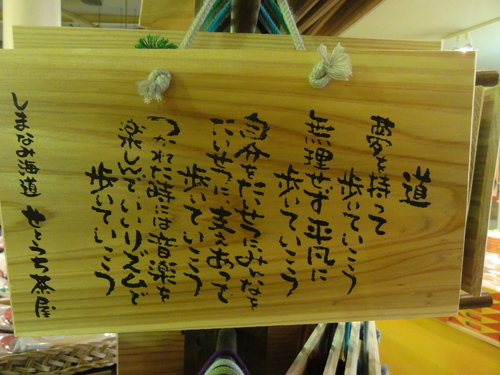 道
夢を持って
歩いていこう
無理せず平凡に
歩いていこう
自分をたいせつにみんなを
たいせつに支えあって
歩いていこう
つかれた時には音楽を
楽しんでいいリズムで
歩いていこう
しまなみ海道 せとうち茶屋